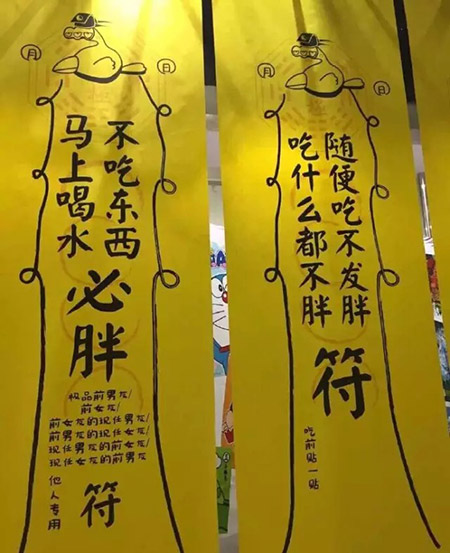 月
日
不吃东西
马上喝水
必胖
极品前男友/
前女友/
前女友的现任男友/
前男友的现任女友/
现任男友的前女友/
现任女友的前男友
他人专用
符
月
日
随便吃不发胖
吃什么都不胖
符
吃前贴一贴